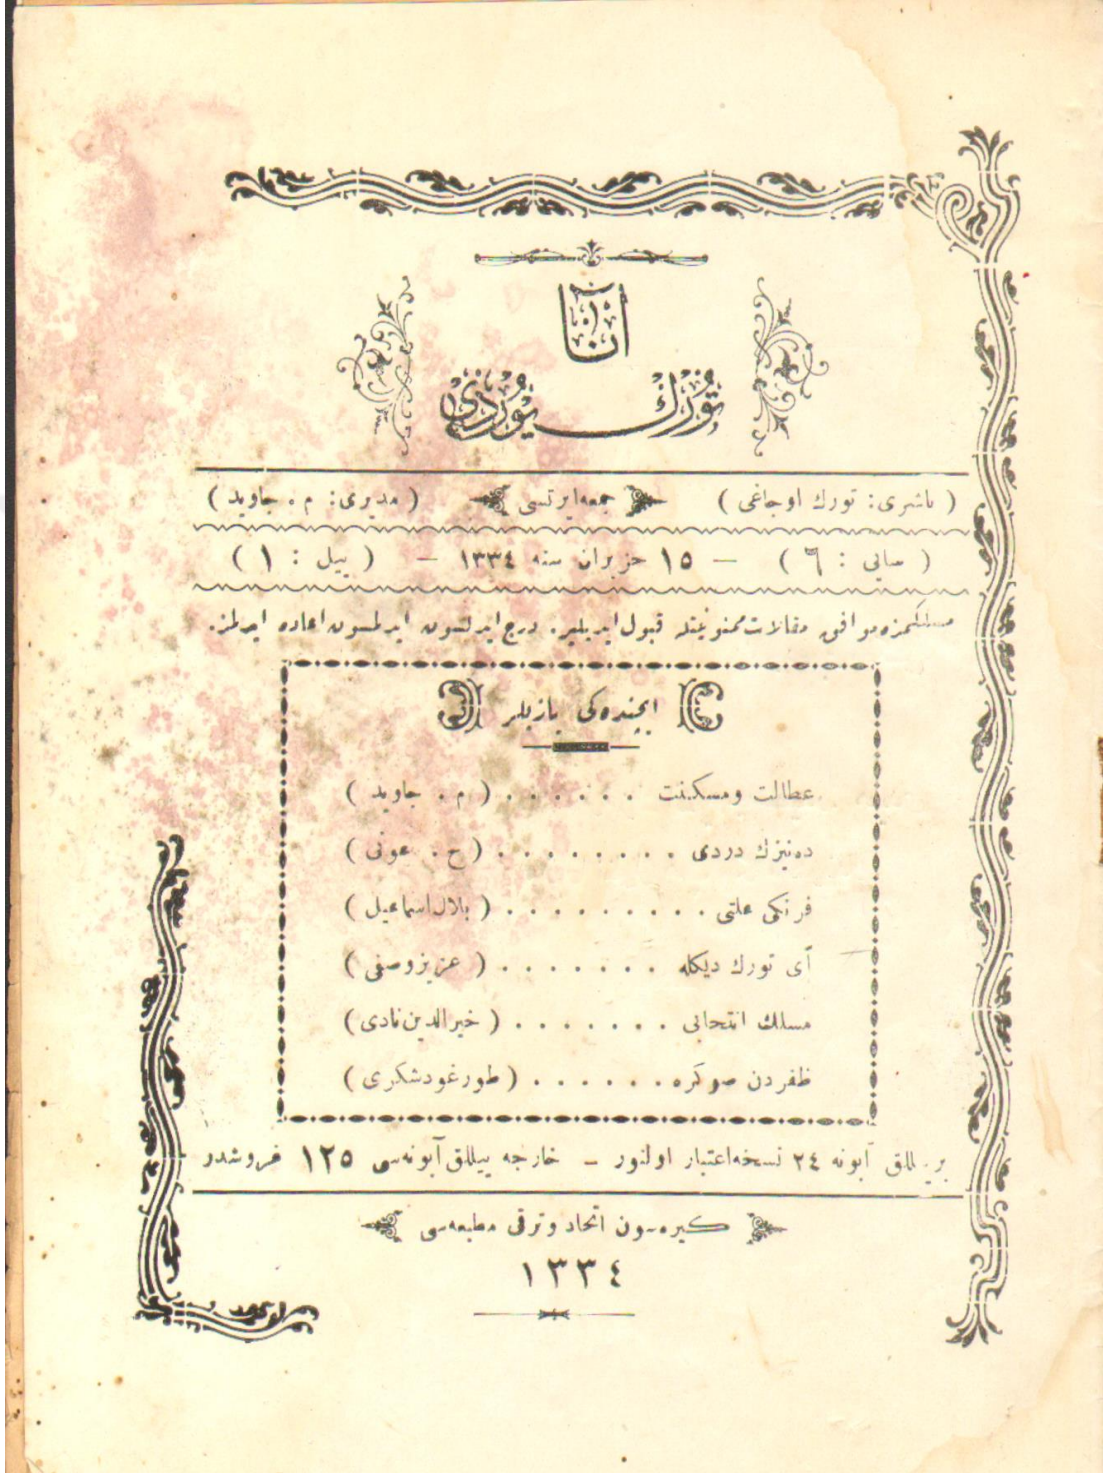 آنا
تورك يوردى
( ناشرى : تورك اوجاغى ) جمعه ايرتسى ( مديرى : م . جاويد )
( سايى : ٦ ) — ١٥ حزيران سنه ١٣٣٤ — ( ييل : ١ )
مسلكمزه موافق مقالات ممنونيتله قبول ايديلير . درج ايدلسون ايدلمسون اعاده ايدلمز .
ايچنده كى يازيلر
عطالت ومسكنت . . . . . . ( م . جاويد )
ده نيزك دردى . . . . . . . . ( ح . عونى )
فرنكى علتى . . . . . . . . . ( بلال اسماعيل )
آى تورك ديكله . . . . . . . ( عزيز وصفى )
مسلك انتخابى . . . . . . . ( خيرالدين نادى )
ظفردن صوكره . . . . . . ( طورغود شكرى )
آبونه ٢٤ نسخه اعتبار اولنور — خارجه ييللق آبونه سى ١٢٥ غروشدر
كيره سون اتحاد وترقى مطبعه سى
١٣٣٤